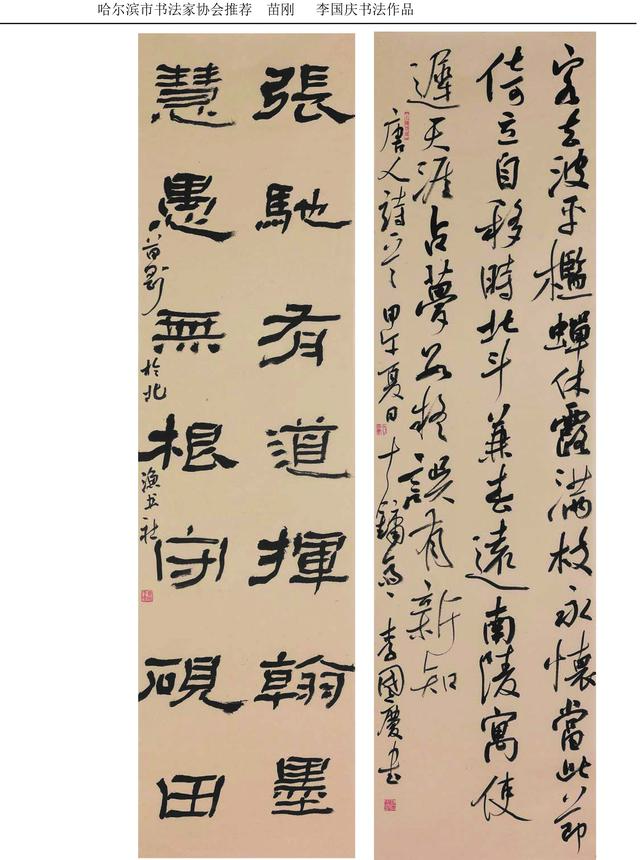 哈尔滨市书法家协会推荐 苗刚 李国庆书法作品
客去波平檻蟬休露滿枝永懷當此節
倚立自移時北斗兼春遠南陵寓使
遲天涯占夢數疑誤有新知
唐人詩一首 甲午夏日 李國慶書
張馳有道揮翰墨
慧愚無根守硯田
苗剛於北漁书社